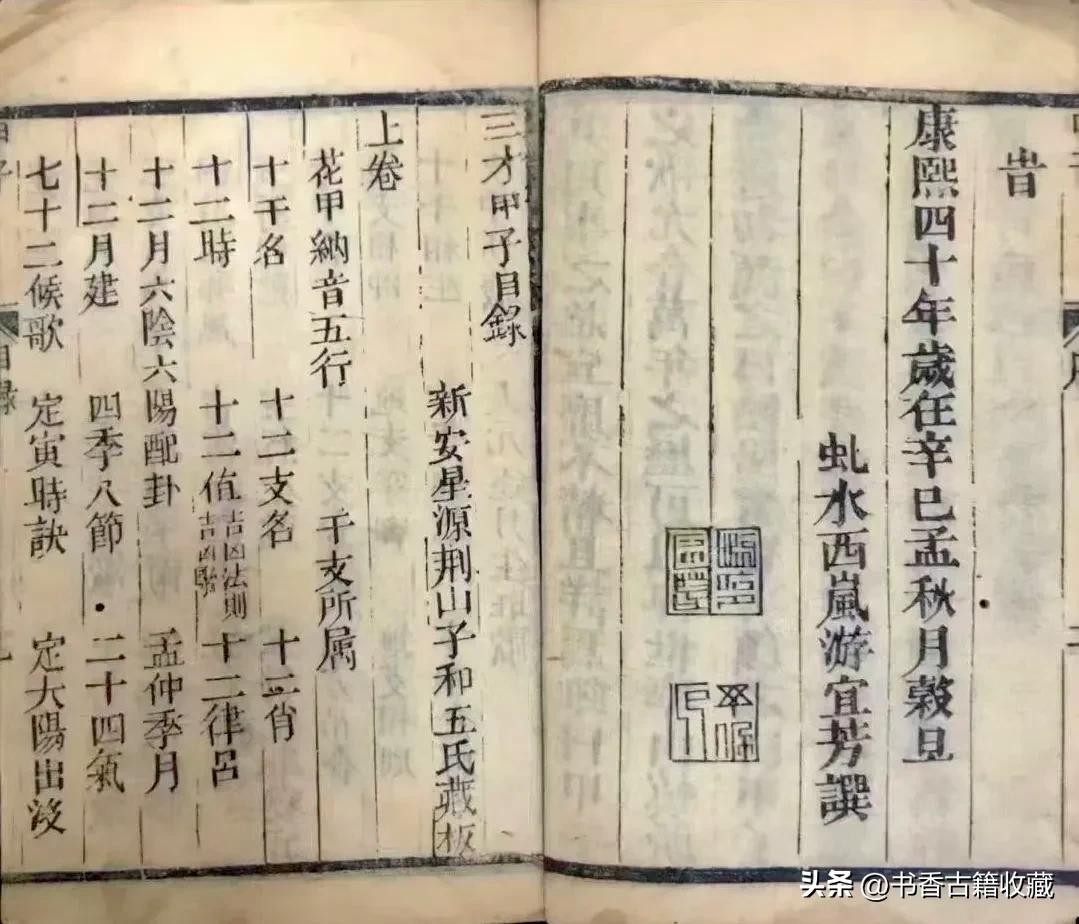 昔
康熙四十年歲在辛巳孟秋月穀旦
虬水西嵐游宜芳譔
三才甲子目錄
新安星源荆山子和五氏藏板
上卷
花甲納音五行 干支所属
十干名 十二支名 十二肖
十二時 十二値 吉凶法則 吉凶 十二律呂
十二月六陰六陽配卦 孟仲季月
十二月建 四季八節 二十四氣
七十二候歌 定寅時訣 定大陽出没
目錄
头条 @书香古籍收藏